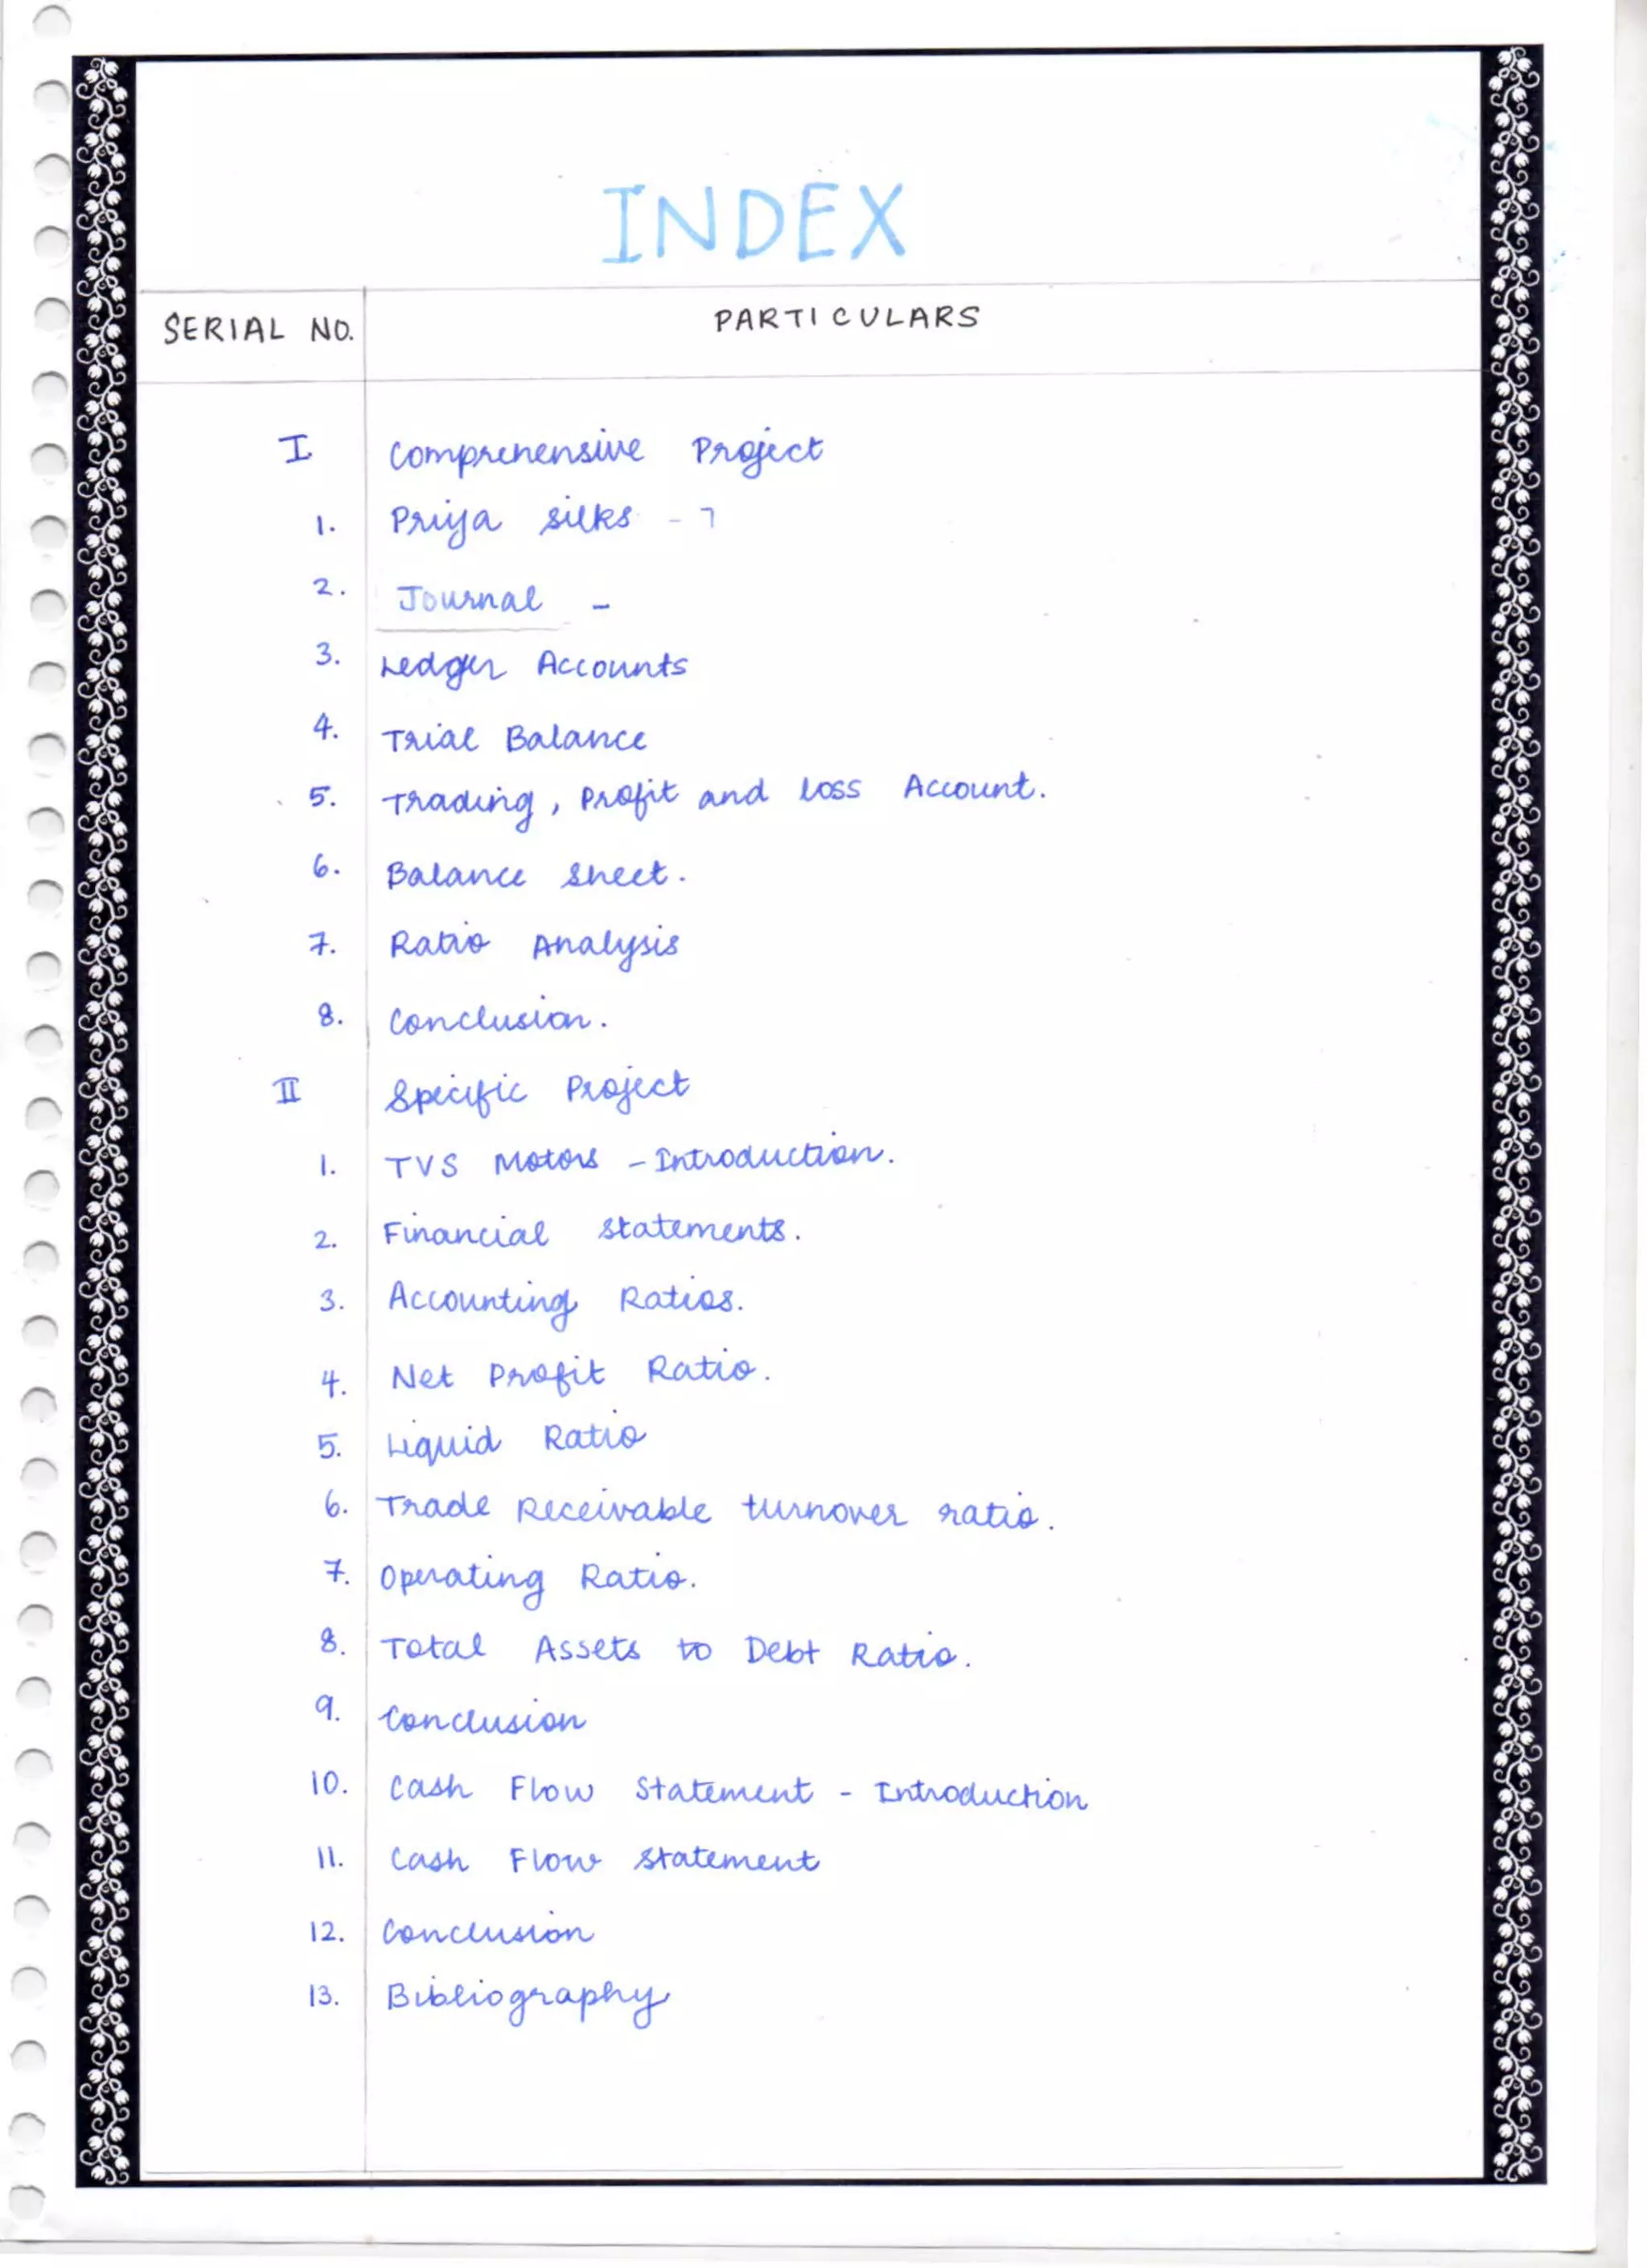 INDEX
SERIAL NO. PARTICULARS
I Comprehensive Project
1. Priya silks - 7
2. Journal -
3. Ledger Accounts
4. Trial Balance
5. Trading, Profit and loss Account.
6. Balance sheet.
7. Ratio Analysis
8. Conclusion.
II Specific Project
1. TVS Motors - Introduction.
2. Financial statements.
3. Accounting Ratios.
4. Net Profit Ratio.
5. Liquid Ratio
6. Trade Receivable turnover ratio.
7. Operating Ratio.
8. Total Assets to Debt Ratio.
9. Conclusion
10. Cash Flow Statement - Introduction
11. Cash Flow statement
12. Conclusion
13. Bibliography